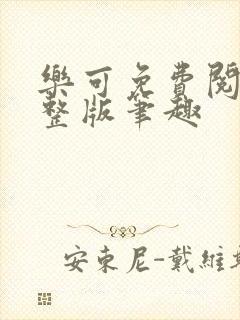 樂可免費閱
整版筆趣
安東尼-戴維斯